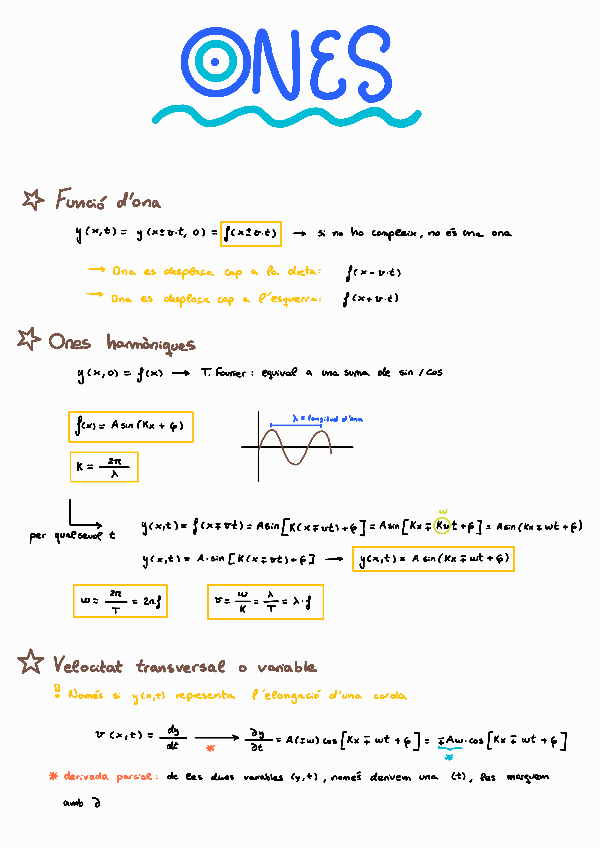 ONES
Funció d'ona
y(x,t) = y(x±v·t, 0) = f(x±v·t) → si no ho compleix, no és una ona
→ Ona es desplaça cap a la dreta: f(x-v·t)
→ Ona es desplaça cap a l'esquerra: f(x+v·t)
Ones harmòniques
y(x,0) = f(x) → T. Fourier: equival a una suma de sin/cos
λ = longitud d'ona
f(x) = A sin(Kx + φ)
K = 2π/λ
per qualsevol t
w
y(x,t) = f(x∓vt) = A sin[K(x∓vt)+φ] = A sin[Kx∓Kvt+φ] = A sin(Kx∓wt+φ)
y(x,t) = A·sin[K(x∓vt)+φ] → y(x,t) = A sin(Kx∓wt+φ)
w = 2π/T = 2πf
v = w/K = λ/T = λ·f
Velocitat transversal o variable
! Només si y(x,t) representa l'elongació d'una corda
v(x,t) = dy/dt * → ∂y/∂t = A(∓w)cos[Kx∓wt+φ] = ∓Aw·cos[Kx∓wt+φ]
*
* derivada parcial: de les dues variables (y,t), només derivem una (t), les marquem
amb ∂